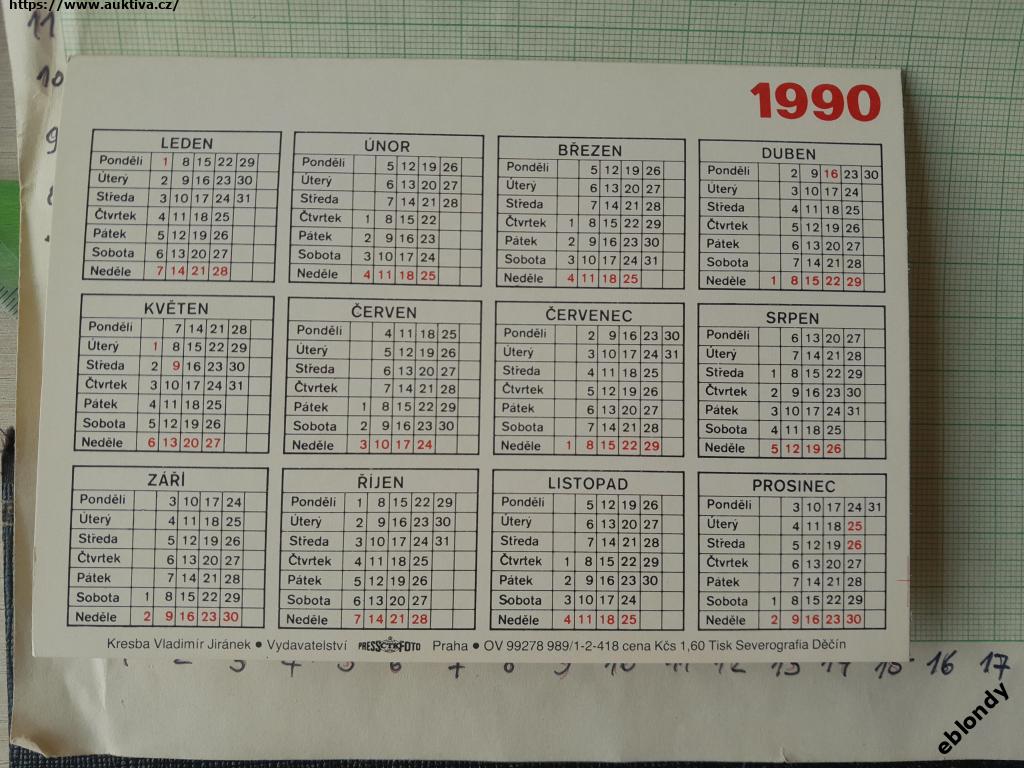 https://www.auktiva.cz/
11
10
9
8
1990
LEDEN
Pondělí 1 8 15 22 29
Úterý 2 9 16 23 30
Středa 3 10 17 24 31
Čtvrtek 4 11 18 25
Pátek 5 12 19 26
Sobota 6 13 20 27
Neděle 7 14 21 28
ÚNOR
Pondělí 5 12 19 26
Úterý 6 13 20 27
Středa 7 14 21 28
Čtvrtek 1 8 15 22
Pátek 2 9 16 23
Sobota 3 10 17 24
Neděle 4 11 18 25
BŘEZEN
Pondělí 5 12 19 26
Úterý 6 13 20 27
Středa 7 14 21 28
Čtvrtek 1 8 15 22 29
Pátek 2 9 16 23 30
Sobota 3 10 17 24 31
Neděle 4 11 18 25
DUBEN
Pondělí 2 9 16 23 30
Úterý 3 10 17 24
Středa 4 11 18 25
Čtvrtek 5 12 19 26
Pátek 6 13 20 27
Sobota 7 14 21 28
Neděle 1 8 15 22 29
KVĚTEN
Pondělí 7 14 21 28
Úterý 1 8 15 22 29
Středa 2 9 16 23 30
Čtvrtek 3 10 17 24 31
Pátek 4 11 18 25
Sobota 5 12 19 26
Neděle 6 13 20 27
ČERVEN
Pondělí 4 11 18 25
Úterý 5 12 19 26
Středa 6 13 20 27
Čtvrtek 7 14 21 28
Pátek 1 8 15 22 29
Sobota 2 9 16 23 30
Neděle 3 10 17 24
ČERVENEC
Pondělí 2 9 16 23 30
Úterý 3 10 17 24 31
Středa 4 11 18 25
Čtvrtek 5 12 19 26
Pátek 6 13 20 27
Sobota 7 14 21 28
Neděle 1 8 15 22 29
SRPEN
Pondělí 6 13 20 27
Úterý 7 14 21 28
Středa 1 8 15 22 29
Čtvrtek 2 9 16 23 30
Pátek 3 10 17 24 31
Sobota 4 11 18 25
Neděle 5 12 19 26
ZÁŘÍ
Pondělí 3 10 17 24
Úterý 4 11 18 25
Středa 5 12 19 26
Čtvrtek 6 13 20 27
Pátek 7 14 21 28
Sobota 1 8 15 22 29
Neděle 2 9 16 23 30
ŘÍJEN
Pondělí 1 8 15 22 29
Úterý 2 9 16 23 30
Středa 3 10 17 24 31
Čtvrtek 4 11 18 25
Pátek 5 12 19 26
Sobota 6 13 20 27
Neděle 7 14 21 28
LISTOPAD
Pondělí 5 12 19 26
Úterý 6 13 20 27
Středa 7 14 21 28
Čtvrtek 1 8 15 22 29
Pátek 2 9 16 23 30
Sobota 3 10 17 24
Neděle 4 11 18 25
PROSINEC
Pondělí 3 10 17 24 31
Úterý 4 11 18 25
Středa 5 12 19 26
Čtvrtek 6 13 20 27
Pátek 7 14 21 28
Sobota 1 8 15 22 29
Neděle 2 9 16 23 30
Kresba Vladimír Jiránek ● Vydavatelství PRESSFOTO Praha ● OV 99278 989/1-2-418 cena Kčs 1,60 Tisk Severografia Děčín
1 2 3 4 5 6 7 8 9 10 11 12 13 14 15 16 17
eblondy